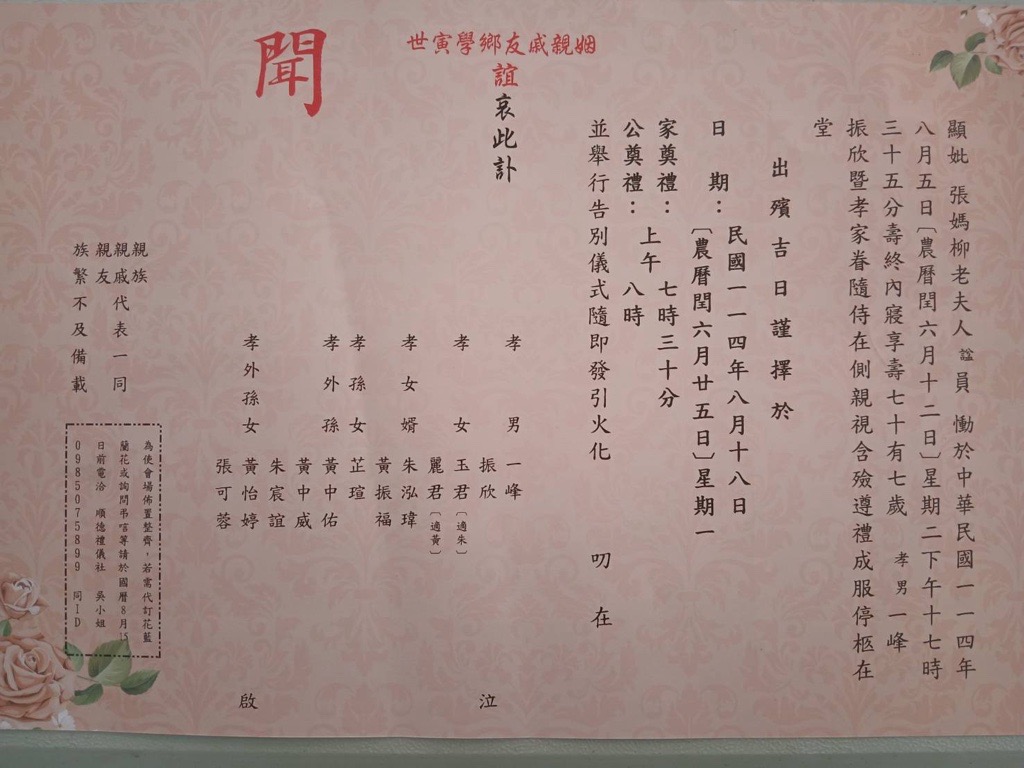 顯妣 張媽柳老夫人 諡 員 慟於中華民國一一四年
八月五日〔農曆閏六月十二日〕星期二下午十七時
三十五分壽終內寢享壽七十有七歲 孝男 一峰
振欣暨孝家眷隨侍在側親視含殮遵禮成服停柩在
堂
出殯吉日謹擇於
日期：民國一一四年八月十八日
〔農曆閏六月廿五日〕星期一
家奠禮：上午 七時三十分
公奠禮： 八時
並舉行告別儀式隨即發引火化 叨在
姻親戚友鄉學寅世
誼
哀此訃
聞
孝男 一峰
振欣
孝女 玉君〔適朱〕
麗君〔適黃〕
孝女婿 朱泓瑋
黃振福
孝孫女 芷瑄
孝外孫 黃中佑
黃中威
朱宸誼
孝外孫女 黃怡婷
張可蓉
泣
啟
親族
親戚代表一同
親友
族繁不及備載
為使會場佈置整齊，若需代訂花籃
蘭花或詢問弔唁等請於國曆8月15
日前電洽 順德禮儀社 吳小姐
0985075899 同ID